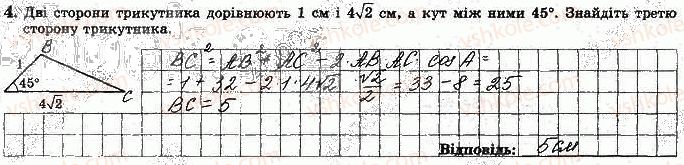 4. Дві сторони трикутника дорівнюють 1 см і 4√2 см, а кут між ними 45°. Знайдіть третю
сторону трикутника.
B
1
45°
4√2
C
BC² = AB² + AC² - 2·AB·AC·cosA =
= 1 + 32 - 2·1·4√2 · √2/2 = 33 - 8 = 25
BC = 5
Відповідь: 5 см